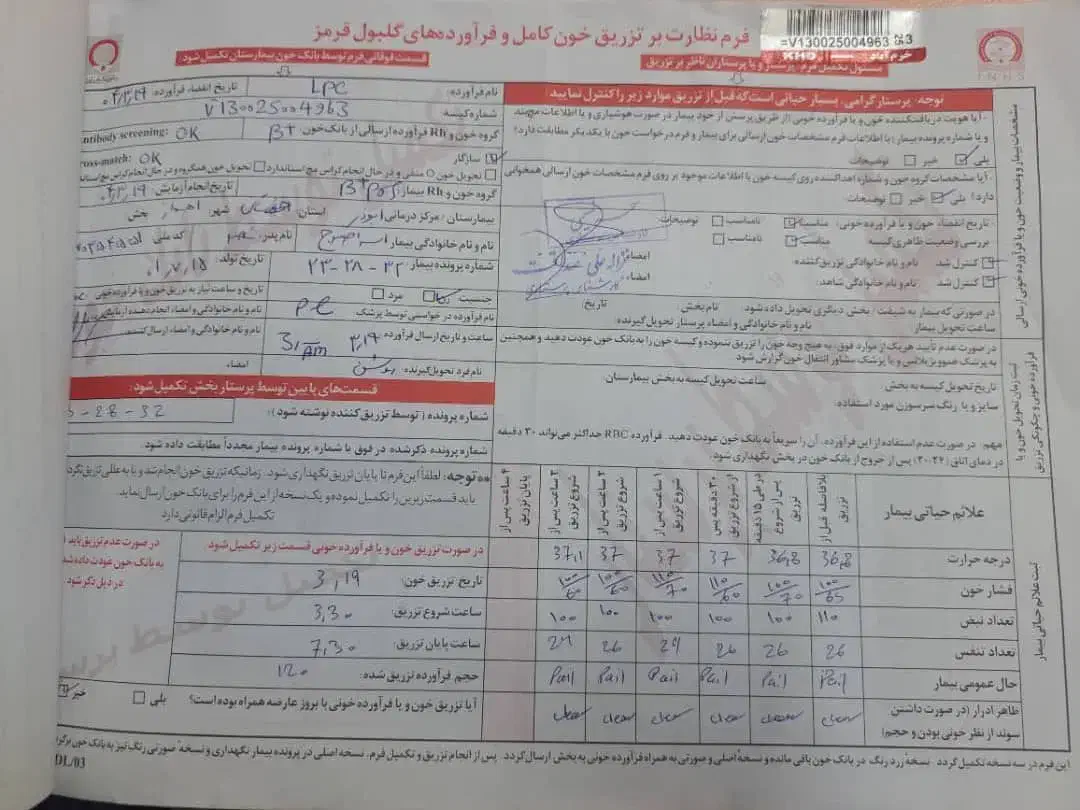 فرم نظارت بر تزریق خون کامل و فرآورده‌های گلبول قرمز
=V130025004963 53
خرم آباد
I.N.H.S
مسئول تکمیل فرم: پرستار و یا پرستاران ناظر بر تزریق
قسمت فوقانی فرم توسط بانک خون بیمارستان تکمیل شود
توجه: پرستار گرامی، بسیار حیاتی است که قبل از تزریق موارد زیر را کنترل نمایید
مشخصات بیمار و وضعیت خون یا فرآورده خونی ارسالی
آیا هویت دریافت‌کننده خون و یا فرآورده خونی از طریق پرسش از خود بیمار در صورت هوشیاری و یا اطلاعات
و یا شماره پرونده بیمار با اطلاعات فرم مشخصات خون ارسالی برای بیمار و فرم درخواست خون با یکدیگر مطابقت دارد؟
بلی خیر توضیحات
آیا مشخصات گروه خون و شماره اهداکننده روی کیسه خون با اطلاعات موجود بر روی فرم مشخصات خون ارسالی همخوانی
دارد؟ بلی خیر توضیحات:
تاریخ انقضاء خون و یا فرآورده خونی: مناسب نامناسب توضیحات
بررسی وضعیت ظاهری کیسه مناسب نامناسب
کنترل شد نام و نام خانوادگی تزریق‌کننده: امضاء
کنترل شد نام و نام خانوادگی شاهد: امضاء
در صورتی که بیمار به شیفت / بخش دیگری تحویل داده شود نام بخش تاریخ
ساعت تحویل بیمار نام و نام خانوادگی و امضاء پرستار تحویل گیرنده:
در صورت عدم تأیید هر یک از موارد فوق، به هیچ وجه خون را تزریق ننموده و کیسه خون را به بانک خون عودت دهید و همچنین
به پزشک هموویژیلانس و یا پزشک مشاور انتقال خون گزارش شود
ثبت زمان تحویل خون و یا فرآورده خونی و چگونگی تزریق
تاریخ تحویل کیسه به بخش: ساعت تحویل کیسه به بخش بیمارستان:
سایز و یا رنگ سرسوزن مورد استفاده:
مهم: در صورت عدم استفاده از این فرآورده، آن را سریعاً به بانک خون عودت دهید. فرآورده RBC حداکثر می‌تواند ۳۰ دقیقه
در دمای اتاق (۲۲-۲۰) پس از خروج از بانک خون در بخش نگهداری شود.
نام فرآورده: LPC تاریخ انقضاء فرآورده:
شماره کیسه V130025004963
گروه خون و Rh فرآورده ارسالی از بانک خون: B+ antibody screening: OK
سازگار cross-match: OK
تحویل خون O منفی و در حال انجام کراس مچ استاندارد تحویل خون همگروه و در حال انجام کراس مچ استاندارد
گروه خون و Rh بیمار: B+ تاریخ انجام آزمایش:
بیمارستان / مرکز درمانی استان: شهر: بخش
نام و نام خانوادگی بیمار نام پدر: کد ملی
شماره پرونده بیمار: ۲۳-۲۸-۳۲ تاریخ تولد:
جنسیت زن مرد تاریخ و ساعت نیاز به تزریق خون و یا فرآورده خونی
نام فرآورده درخواستی توسط پزشک PC نام و نام خانوادگی و امضاء انجام دهنده آزمایش
ساعت و تاریخ ارسال فرآورده ۳,۱۹ AM نام و نام خانوادگی و امضاء ارسال کننده:
نام فرد تحویل گیرنده: امضاء
قسمت‌های پایین توسط پرستار بخش تکمیل شود:
شماره پرونده (توسط تزریق کننده نوشته شود): 3-28-32
شماره پرونده ذکر شده در فوق با شماره پرونده بیمار مجدداً مطابقت داده شود
** توجه: لطفاً این فرم تا پایان تزریق نگهداری شود. زمانیکه تزریق خون انجام شد و یا به عللی تزریق نگردید
باید قسمت زیرین را تکمیل نموده و یک نسخه از این فرم را برای بانک خون ارسال نماید.
تکمیل فرم الزام قانونی دارد
در صورت تزریق خون و یا فرآورده خونی قسمت زیر تکمیل شود
در صورت عدم تزریق باید
به بانک خون عودت داده شد
در ذیل ذکر شود
تاریخ تزریق خون: ۳,۱۹
ساعت شروع تزریق: ۳,۳۰
ساعت پایان تزریق: ۷,۳۰
حجم فرآورده تزریق شده: ۱۲۰
آیا تزریق خون و یا فرآورده خونی با بروز عارضه همراه بوده است؟ بلی خیر
ثبت علائم حیاتی بیمار
علائم حیاتی بیمار بلافاصله قبل از تزریق در طی ۱۵ دقیقه پس از شروع تزریق ۳۰ دقیقه پس از شروع تزریق ۱ ساعت پس از شروع تزریق ۲ ساعت پس از شروع تزریق ۳ ساعت پس از شروع تزریق ۴ ساعت پس از پایان تزریق
درجه حرارت 36,8 36,8 37 37 37 37,1
فشار خون 100/65 100/70 110/60 110/70 100/60 100/60
تعداد نبض ۱۱۰ ۱۰۰ ۱۰۰ ۱۰۰ ۱۰۰ ۱۰۰
تعداد تنفس 26 26 26 24 26 24
حال عمومی بیمار Pail Pail Pail Pail Pail Pail
ظاهر ادرار (در صورت داشتن سوند از نظر خونی بودن و حجم) معمول معمول معمول معمول معمول معمول
این فرم در سه نسخه تکمیل گردد. نسخه زرد رنگ در بانک خون باقی مانده و نسخهٔ اصلی و صورتی به همراه فرآورده خونی به بخش ارسال گردد. پس از انجام تزریق و تکمیل فرم، نسخه اصلی در پرونده بیمار نگهداری و نسخه صورتی رنگ نیز به بانک خون
DL/03